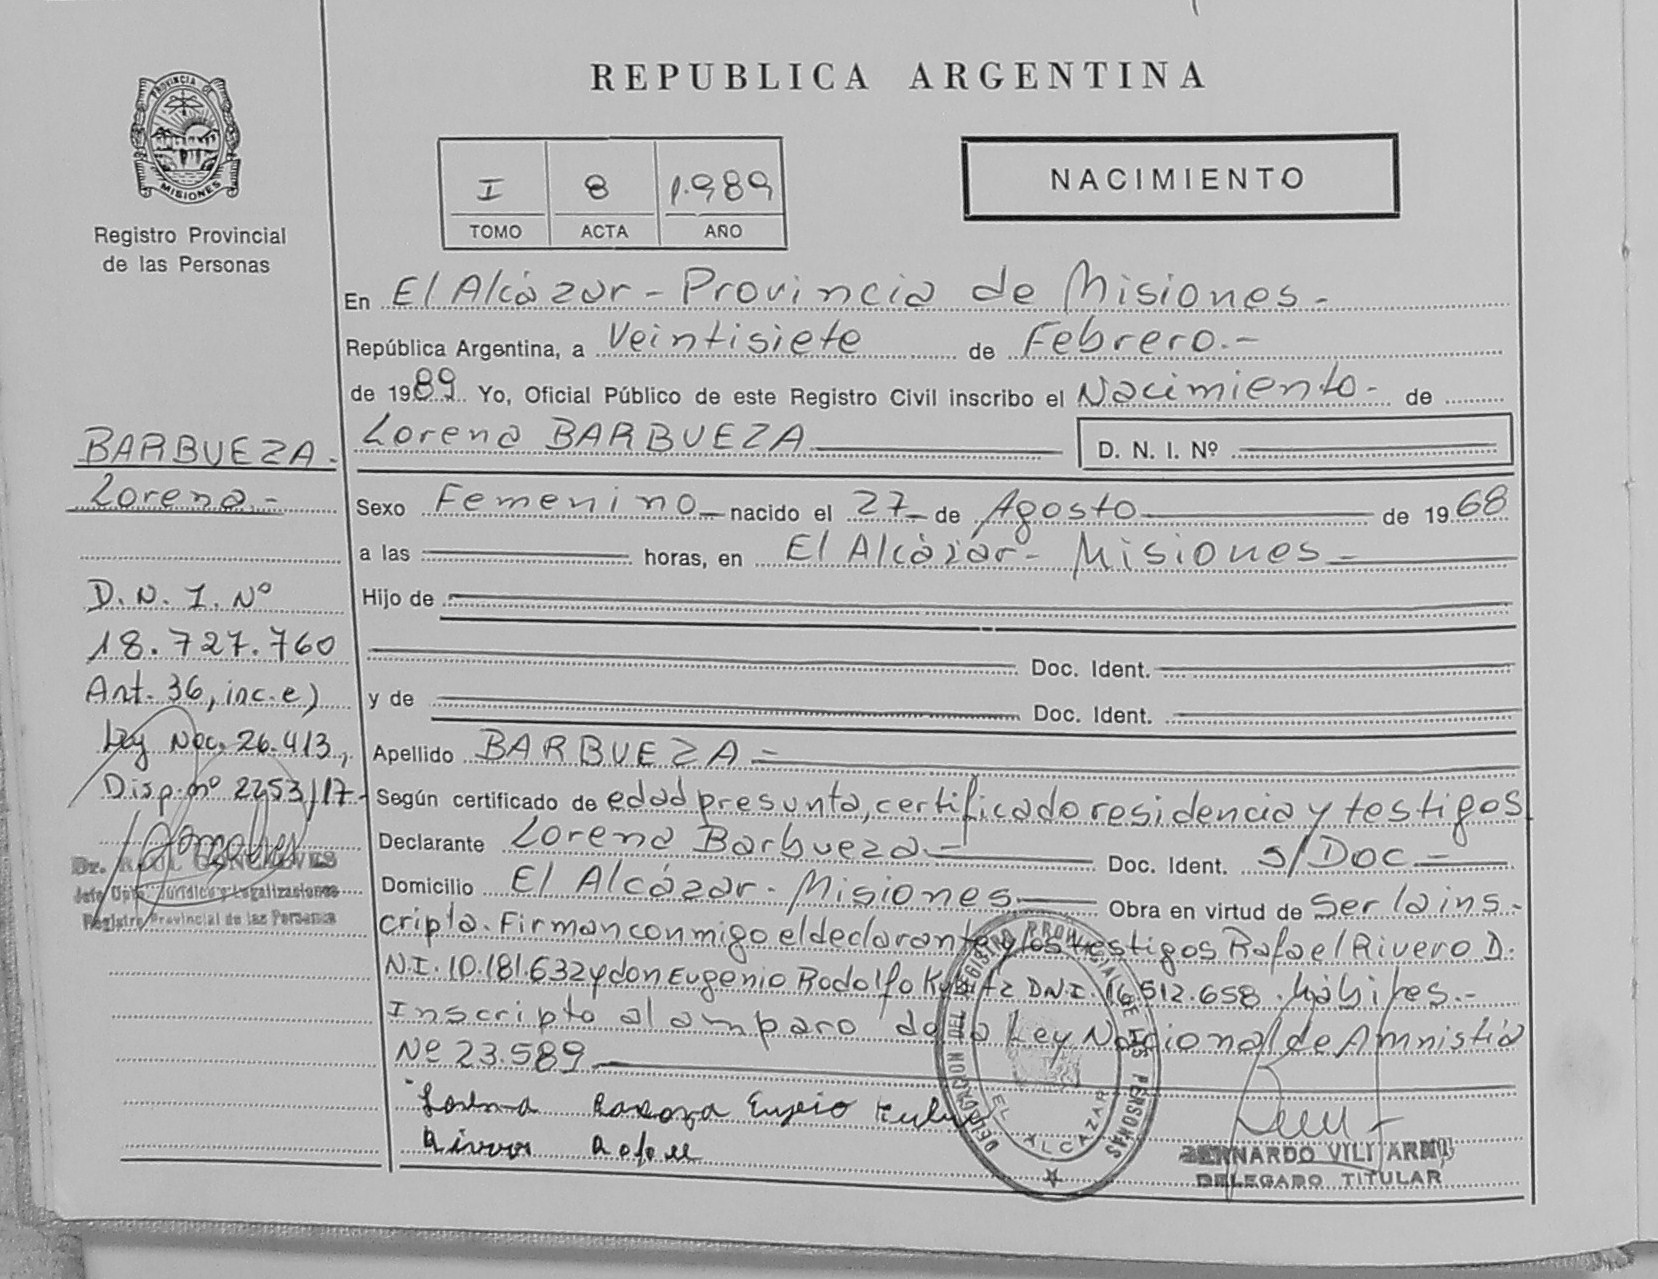 REPUBLICA ARGENTINA
PROVINCIA DE MISIONES
Registro Provincial
de las Personas
I 8 1.989
TOMO ACTA AÑO
NACIMIENTO
En El Alcázar - Provincia de Misiones -
República Argentina, a Veintisiete de Febrero.-
de 1989 Yo, Oficial Público de este Registro Civil inscribo el Nacimiento - de
Lorena BARBUEZA D. N. I. Nº
Sexo Femenino nacido el 27 de Agosto de 1968
a las horas, en El Alcázar - Misiones -
Hijo de
Doc. Ident.
y de Doc. Ident.
Apellido BARBUEZA =
Según certificado de edad presunta, certificado residencia y testigos
Declarante Lorena Barbueza - Doc. Ident. S/Doc -
Domicilio El Alcázar - Misiones Obra en virtud de Ser la ins-
cripta. Firman conmigo el declarante y los testigos Rafael Rivero D.
N.I. 10.181.632 y don Eugenio Rodolfo D.N.I. 16.512.658. hábiles.-
Inscripto al amparo de la Ley Nacional de Amnistía
Nº 23.589
Eugenio
BERNARDO
DELEGADO TITULAR
DELEGACION DEL REGISTRO PROVINCIAL DE LAS PERSONAS
EL ALCAZAR
BARBUEZA -
Lorena -
D. N. I. Nº
18.727.760
Art. 36, inc. e)
Ley Nac. 26.413,
Disp. nº 2253/17-
Dr. RAUL GONCALVES
Jefe Dpto. Jurídico y Legalizaciones
Registro Provincial de las Personas